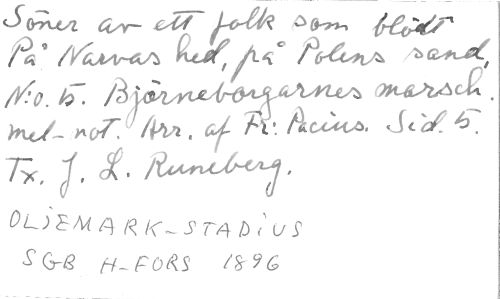 Söner av ett folk som blödt
På Narvas hed, på Polens sand,
N:o. 5. Björneborgarnes marsch.
mel-not. Arr. af Fr: Pacius. Sid. 5.
Tx. J. L. Runeberg.
OLJEMARK-STADIUS
SGB H-FORS 1896